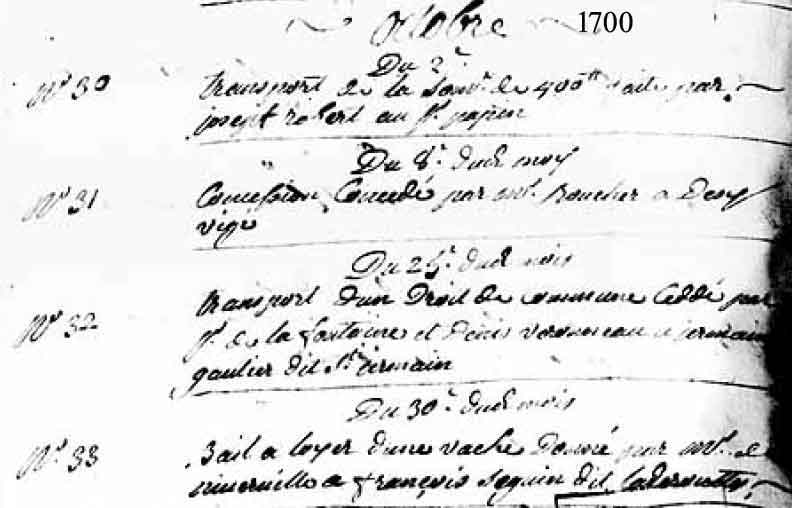 octobre 1700
Du 2e.
No. 30 transport de la som. de 400tt fait par
joseph robert au Sr. papin
Du 8e. dud. moy
No. 31 Concession Concedé par mr. boucher a Deny
vigé
Du 25e. dud. mois
No. 32 transport d'un Droit de commune Ceddé par
Sr. de la fontaine et denis veronneau a jermain
gautier dit St. jermain
Du 30e. dud. mois
No. 33 Bail a loyer d'une vache Donné par mr. de
niverville a françois seguin dit laderoutte